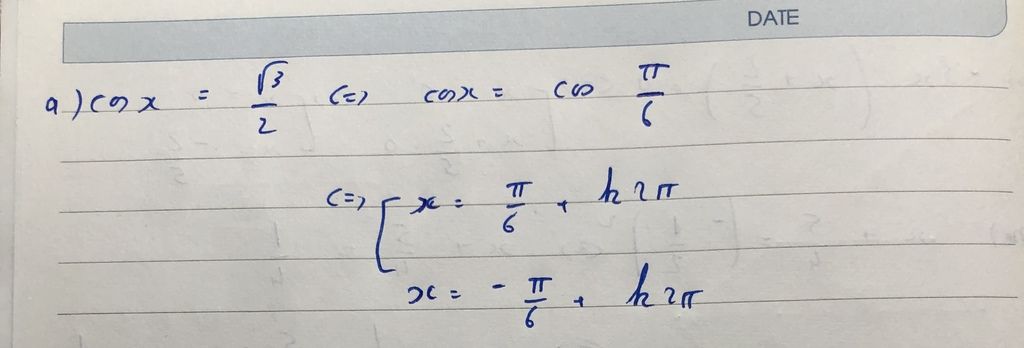 DATE
a) cos x = √3/2 <=> cos x = cos π/6
<=> [ x = π/6 + k2π
x = -π/6 + k2π